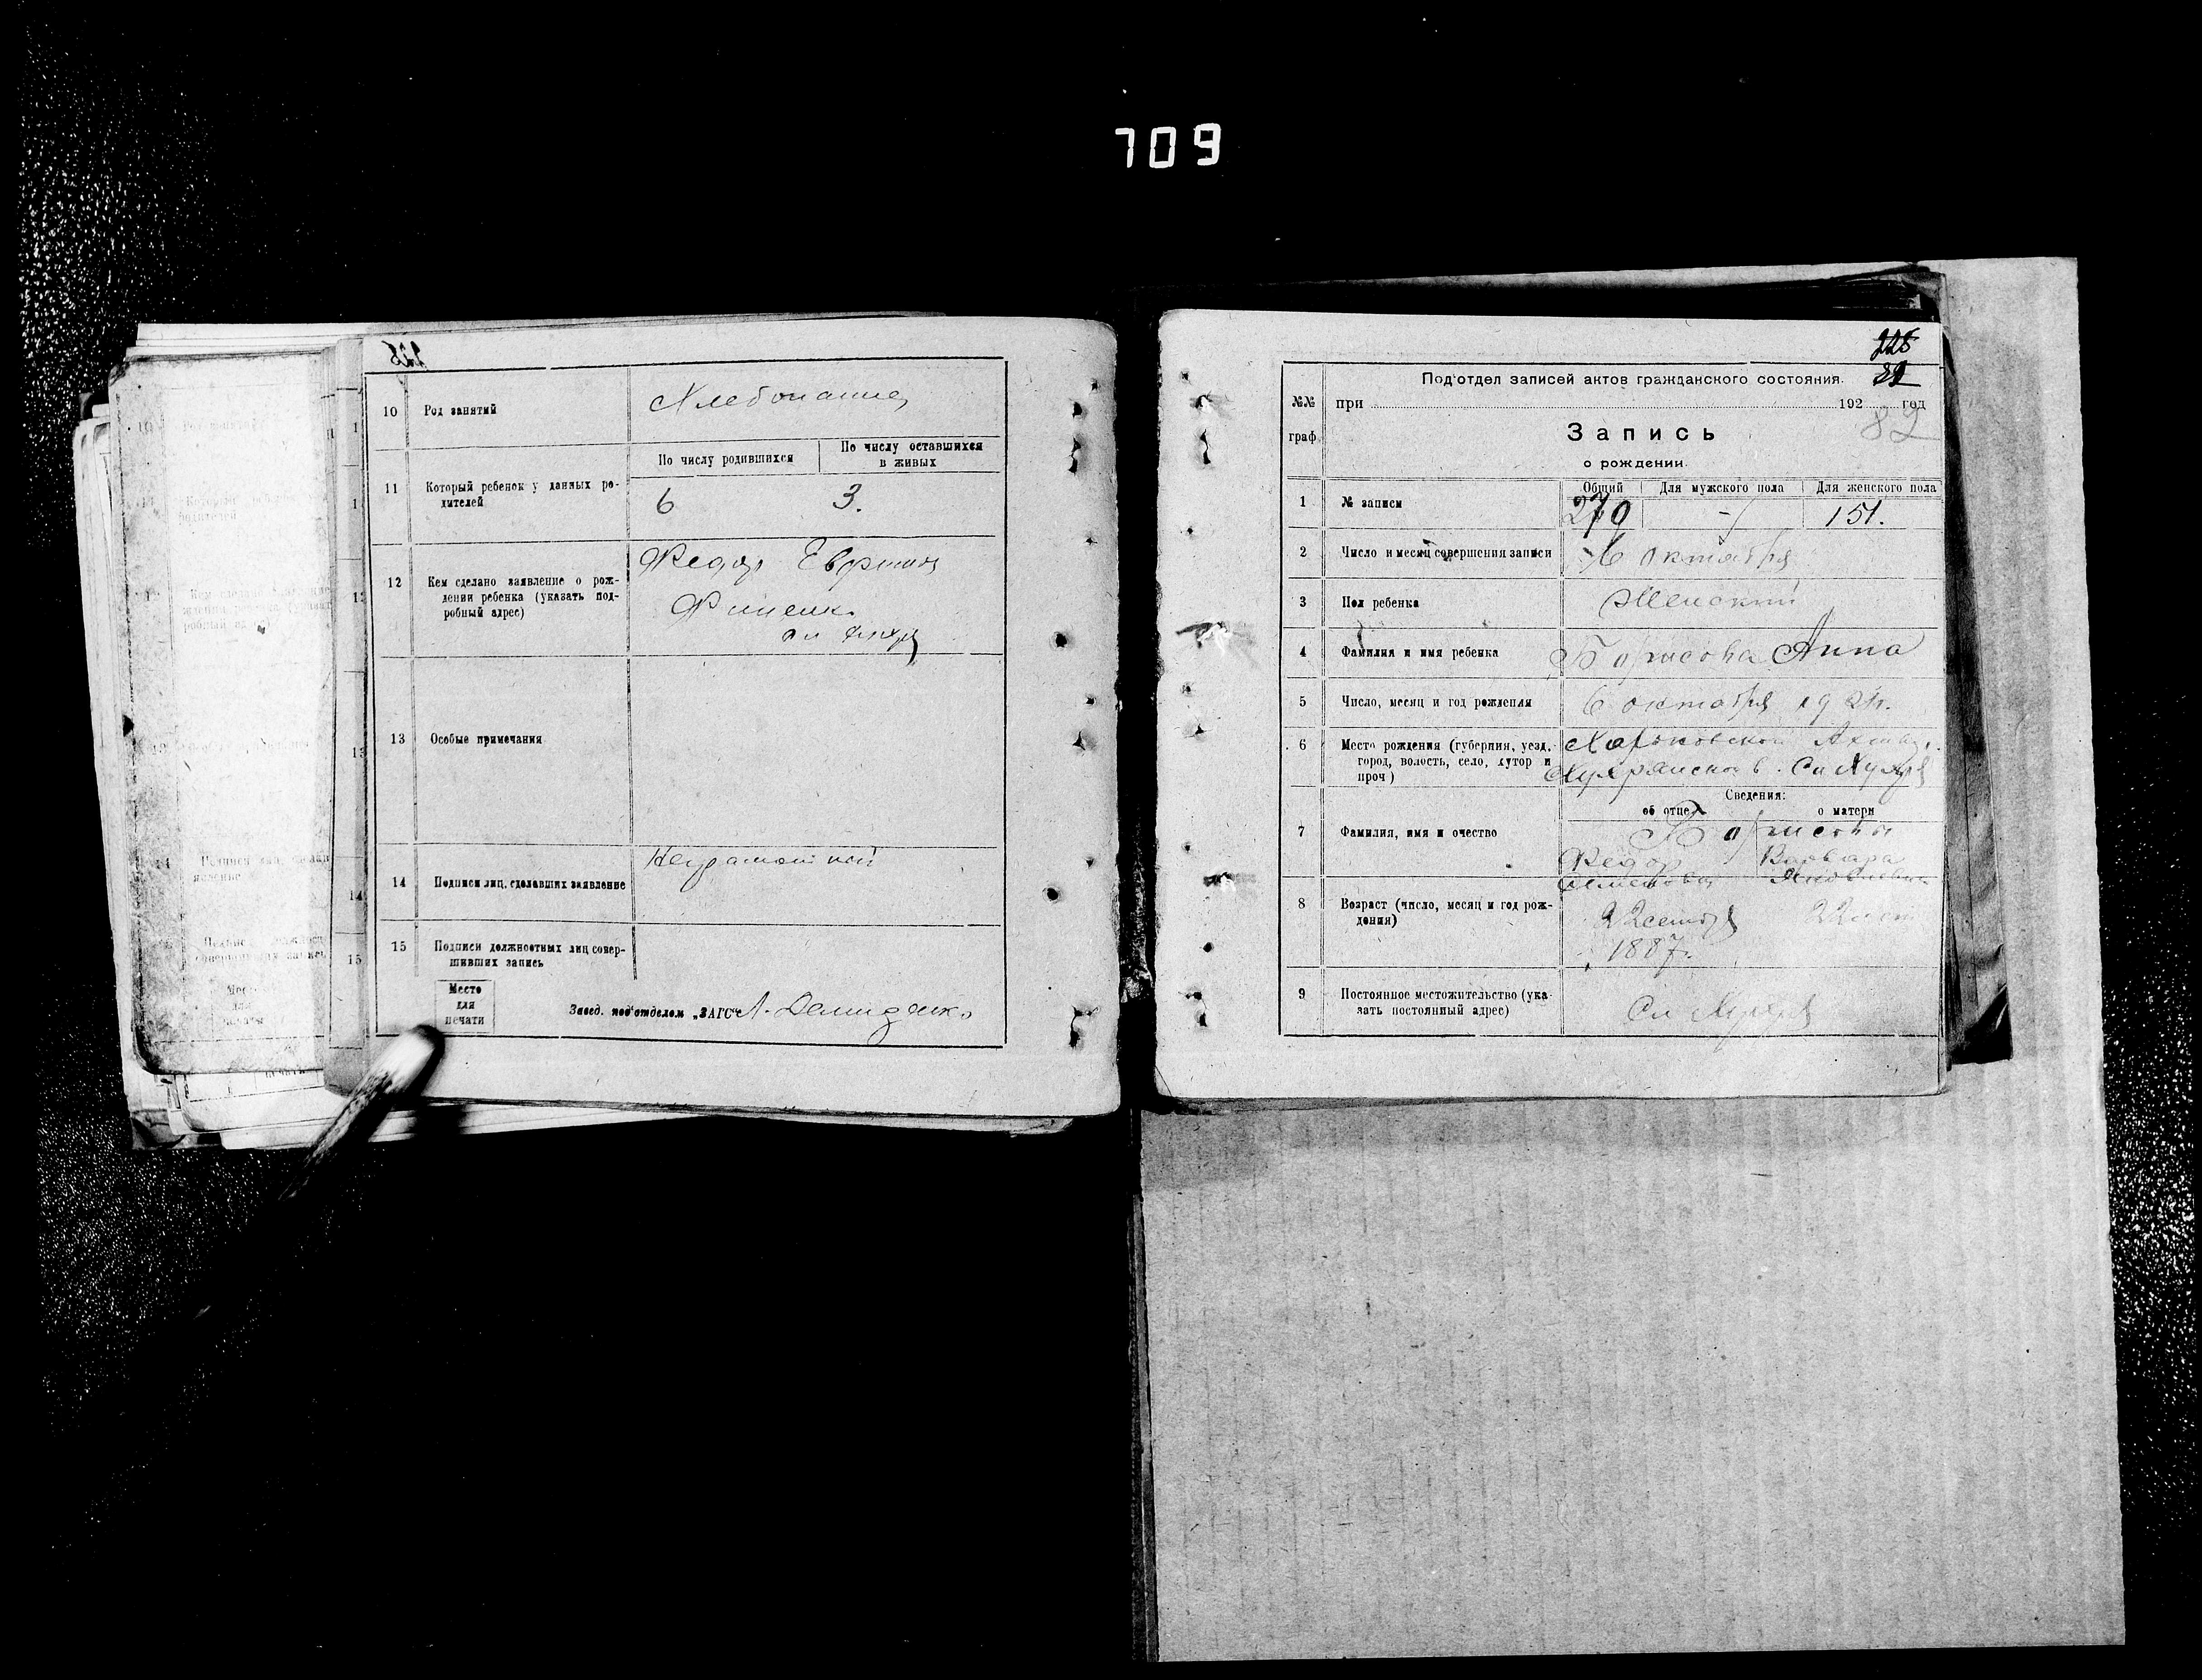 709
10 Род занятий Хлебопашец
По числу родившихся По числу оставшихся
в живых
11 Который ребенок у данных ро-
дителей 6 3.
12 Кем сделано заявление о рож-
дении ребенка (указать под-
робный адрес)
Федор
13 Особые примечания
14 Подписи лиц, сделавших заявление Неграмотный
15 Подписи должностных лиц совер-
шивших запись
Место
для
печати
Завед. под'отделом „ЗАГС" А. Демиденко
82
Под'отдел записей актов гражданского состояния.
№№ при 192 год
граф.
Запись
о рождении.
Общий Для мужского пола Для женского пола
1 № записи 270 - 151.
2 Число и месяц совершения записи 6 октября
3 Пол ребенка Женский
4 Фамилия и имя ребенка Борисова Анна
5 Число, месяц и год рождения 6 октября
6 Место рождения (губерния, уезд,
город, волость, село, хутор и
проч)
Харьковской
Сведения:
об отце о матери
7 Фамилия, имя и очество
Борисовы
Федор Варвара
Семенович Яковлевна
8 Возраст (число, месяц и год рож-
дения)
22 сентяб
1887 г.
9 Постоянное местожительство (ука-
зать постоянный адрес)
Сл